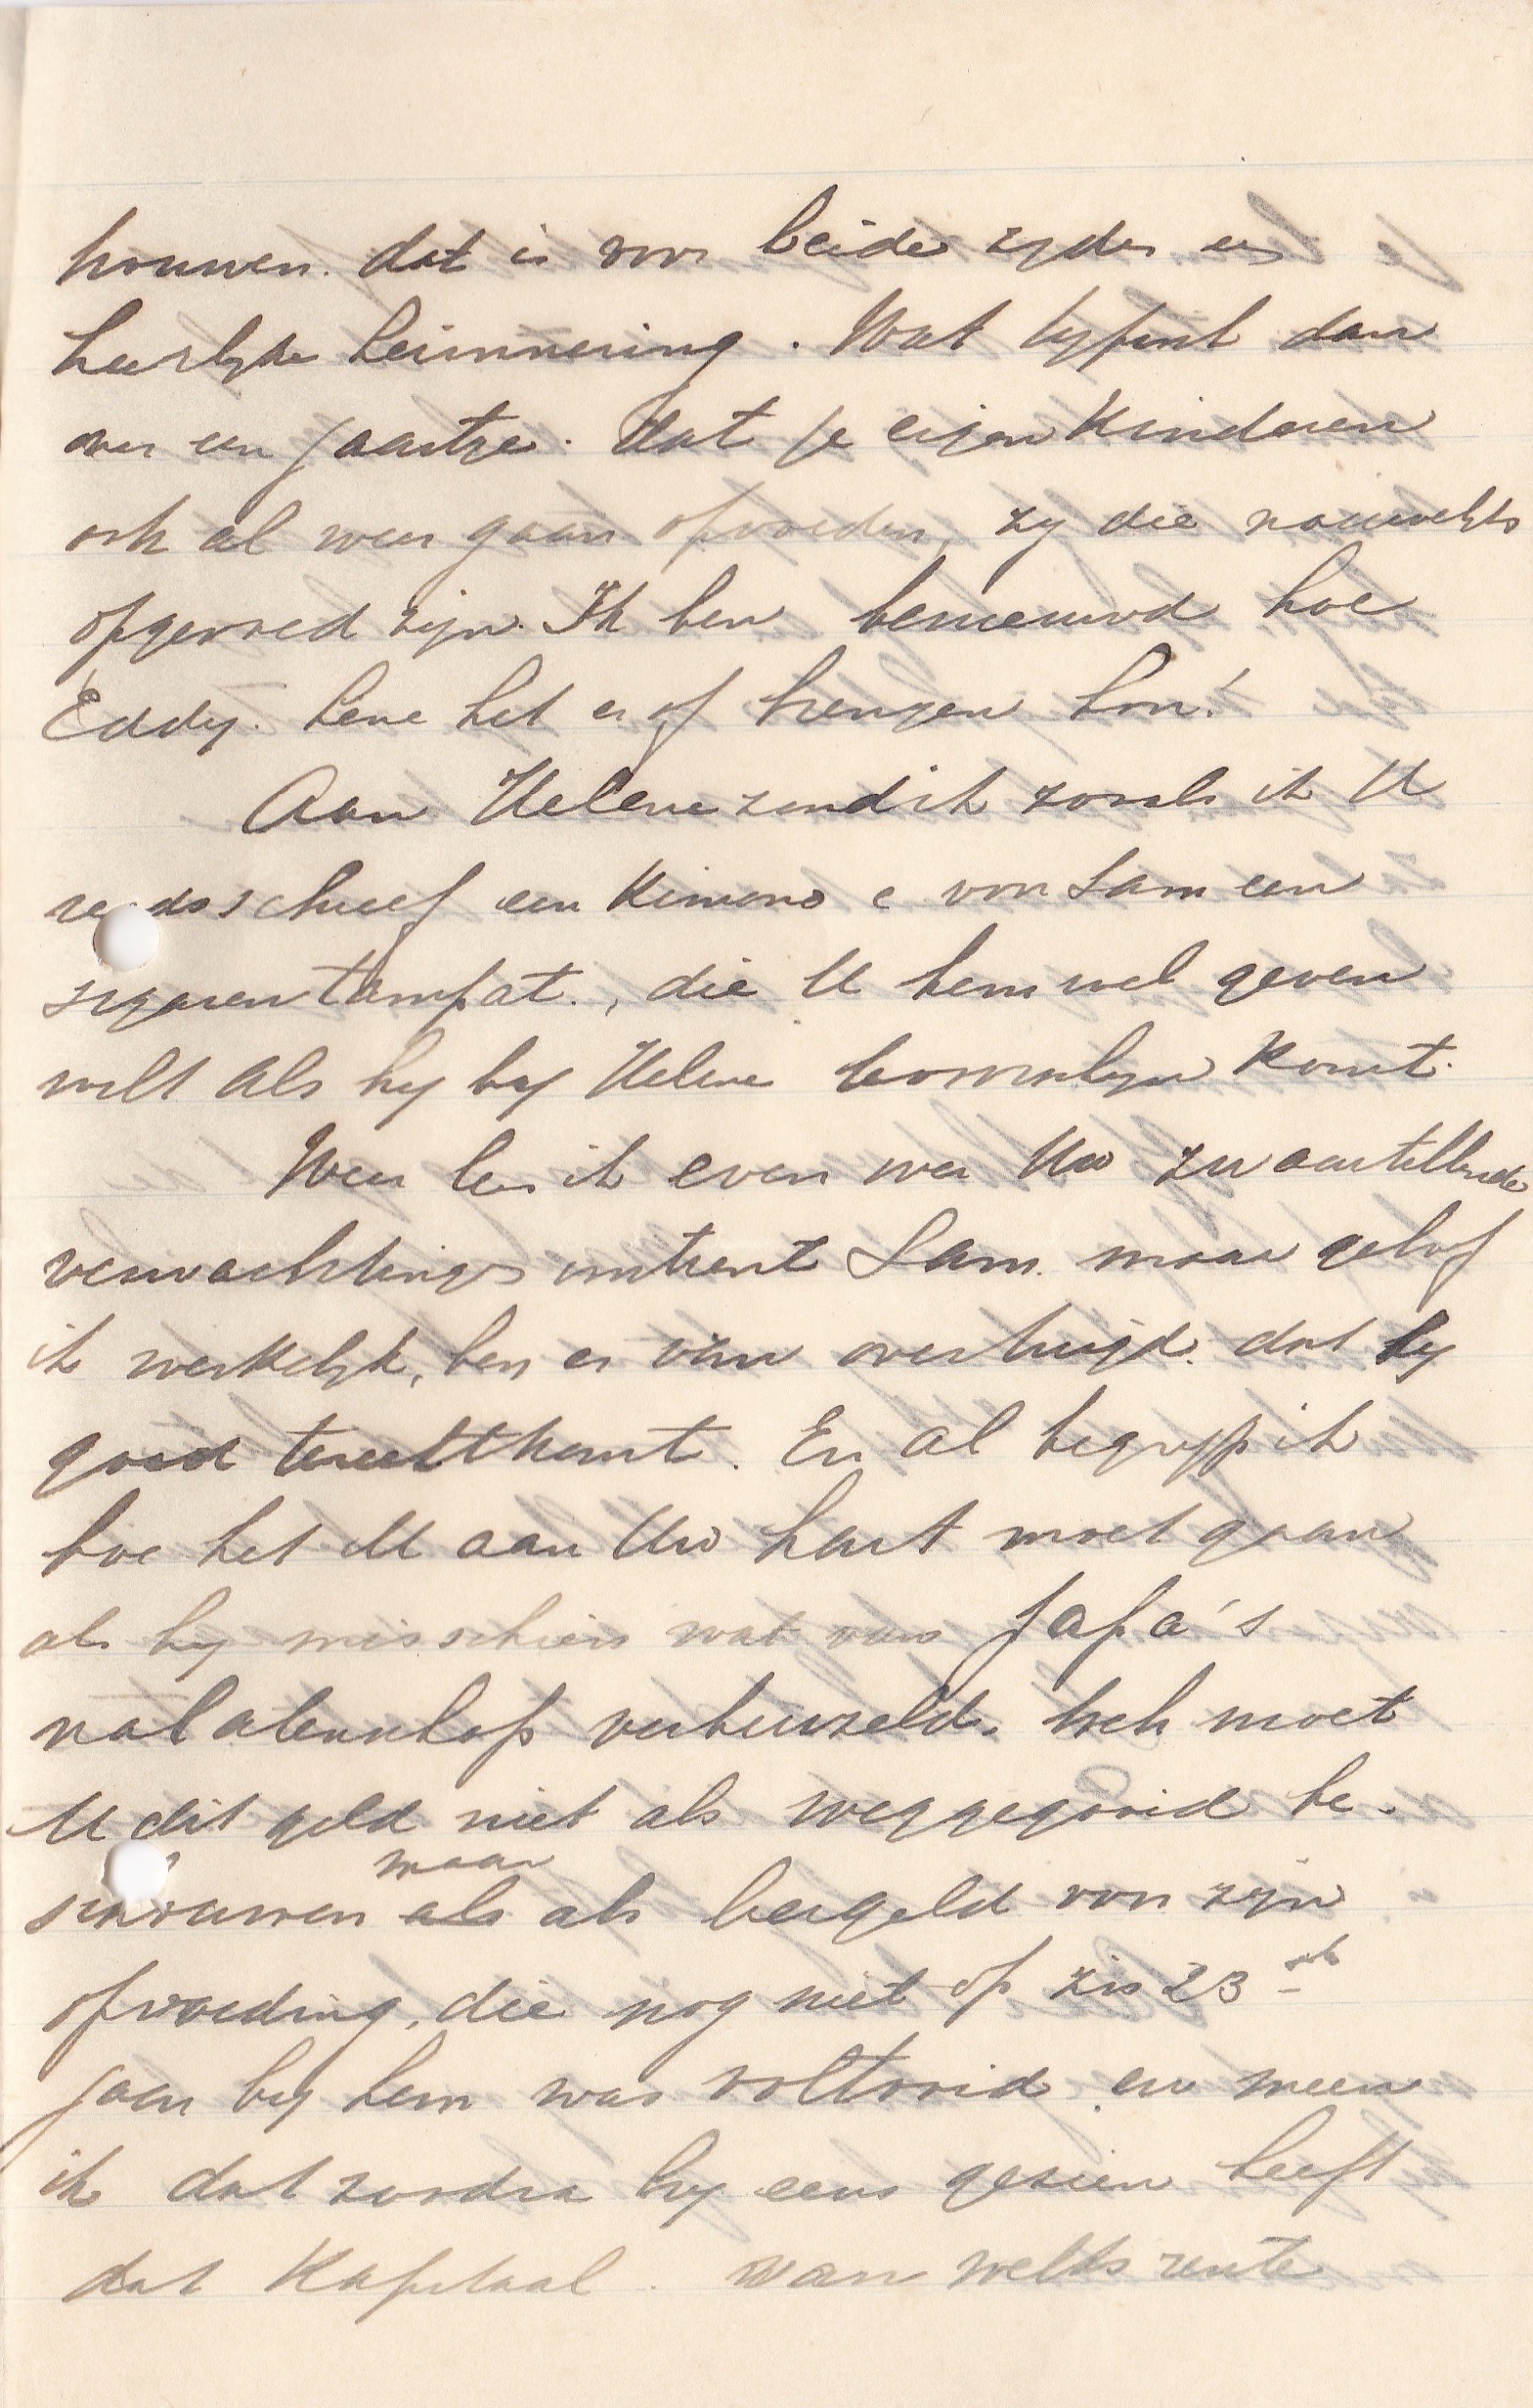 houwen. dat is voor beide zyden een
heerlyke herinnering. Wat typeert dan
over een jaartje. Dat je eigen Kinderen
ook al weer gaan opvoeden, zy die nauwelyks
opgevoed zijn. Ik ben benieuwd hoe
Eddy. Lene het er af brengen hoor!
Aan Helene zend ik zooals ik U
reeds schreef een Kimono & voor Sam een
sigaren tampat., die U hem wel geven
wilt als hy by Helene komt.
Weer lees ik even over Uw zwaartillende
verwachtingen omtrent Sam. maar geloof
ik werkelyk, ben er van overtuigd. dat hy
goed terecht komt. En al begryp ik
hoe het U aan Uw hart moet gaan
als hy misschien wat van papa's
nalatenschap verbeuzeld. toch moet
U dit geld niet als weggegooid be-
schouwen als maar als leergeld voor zijn
opvoeding, die nog niet op zijn 23ste
jaar by hem was voltooid en meen
ik dat zoodra hy eens gezien heeft
dat Kapitaal. van welks rente